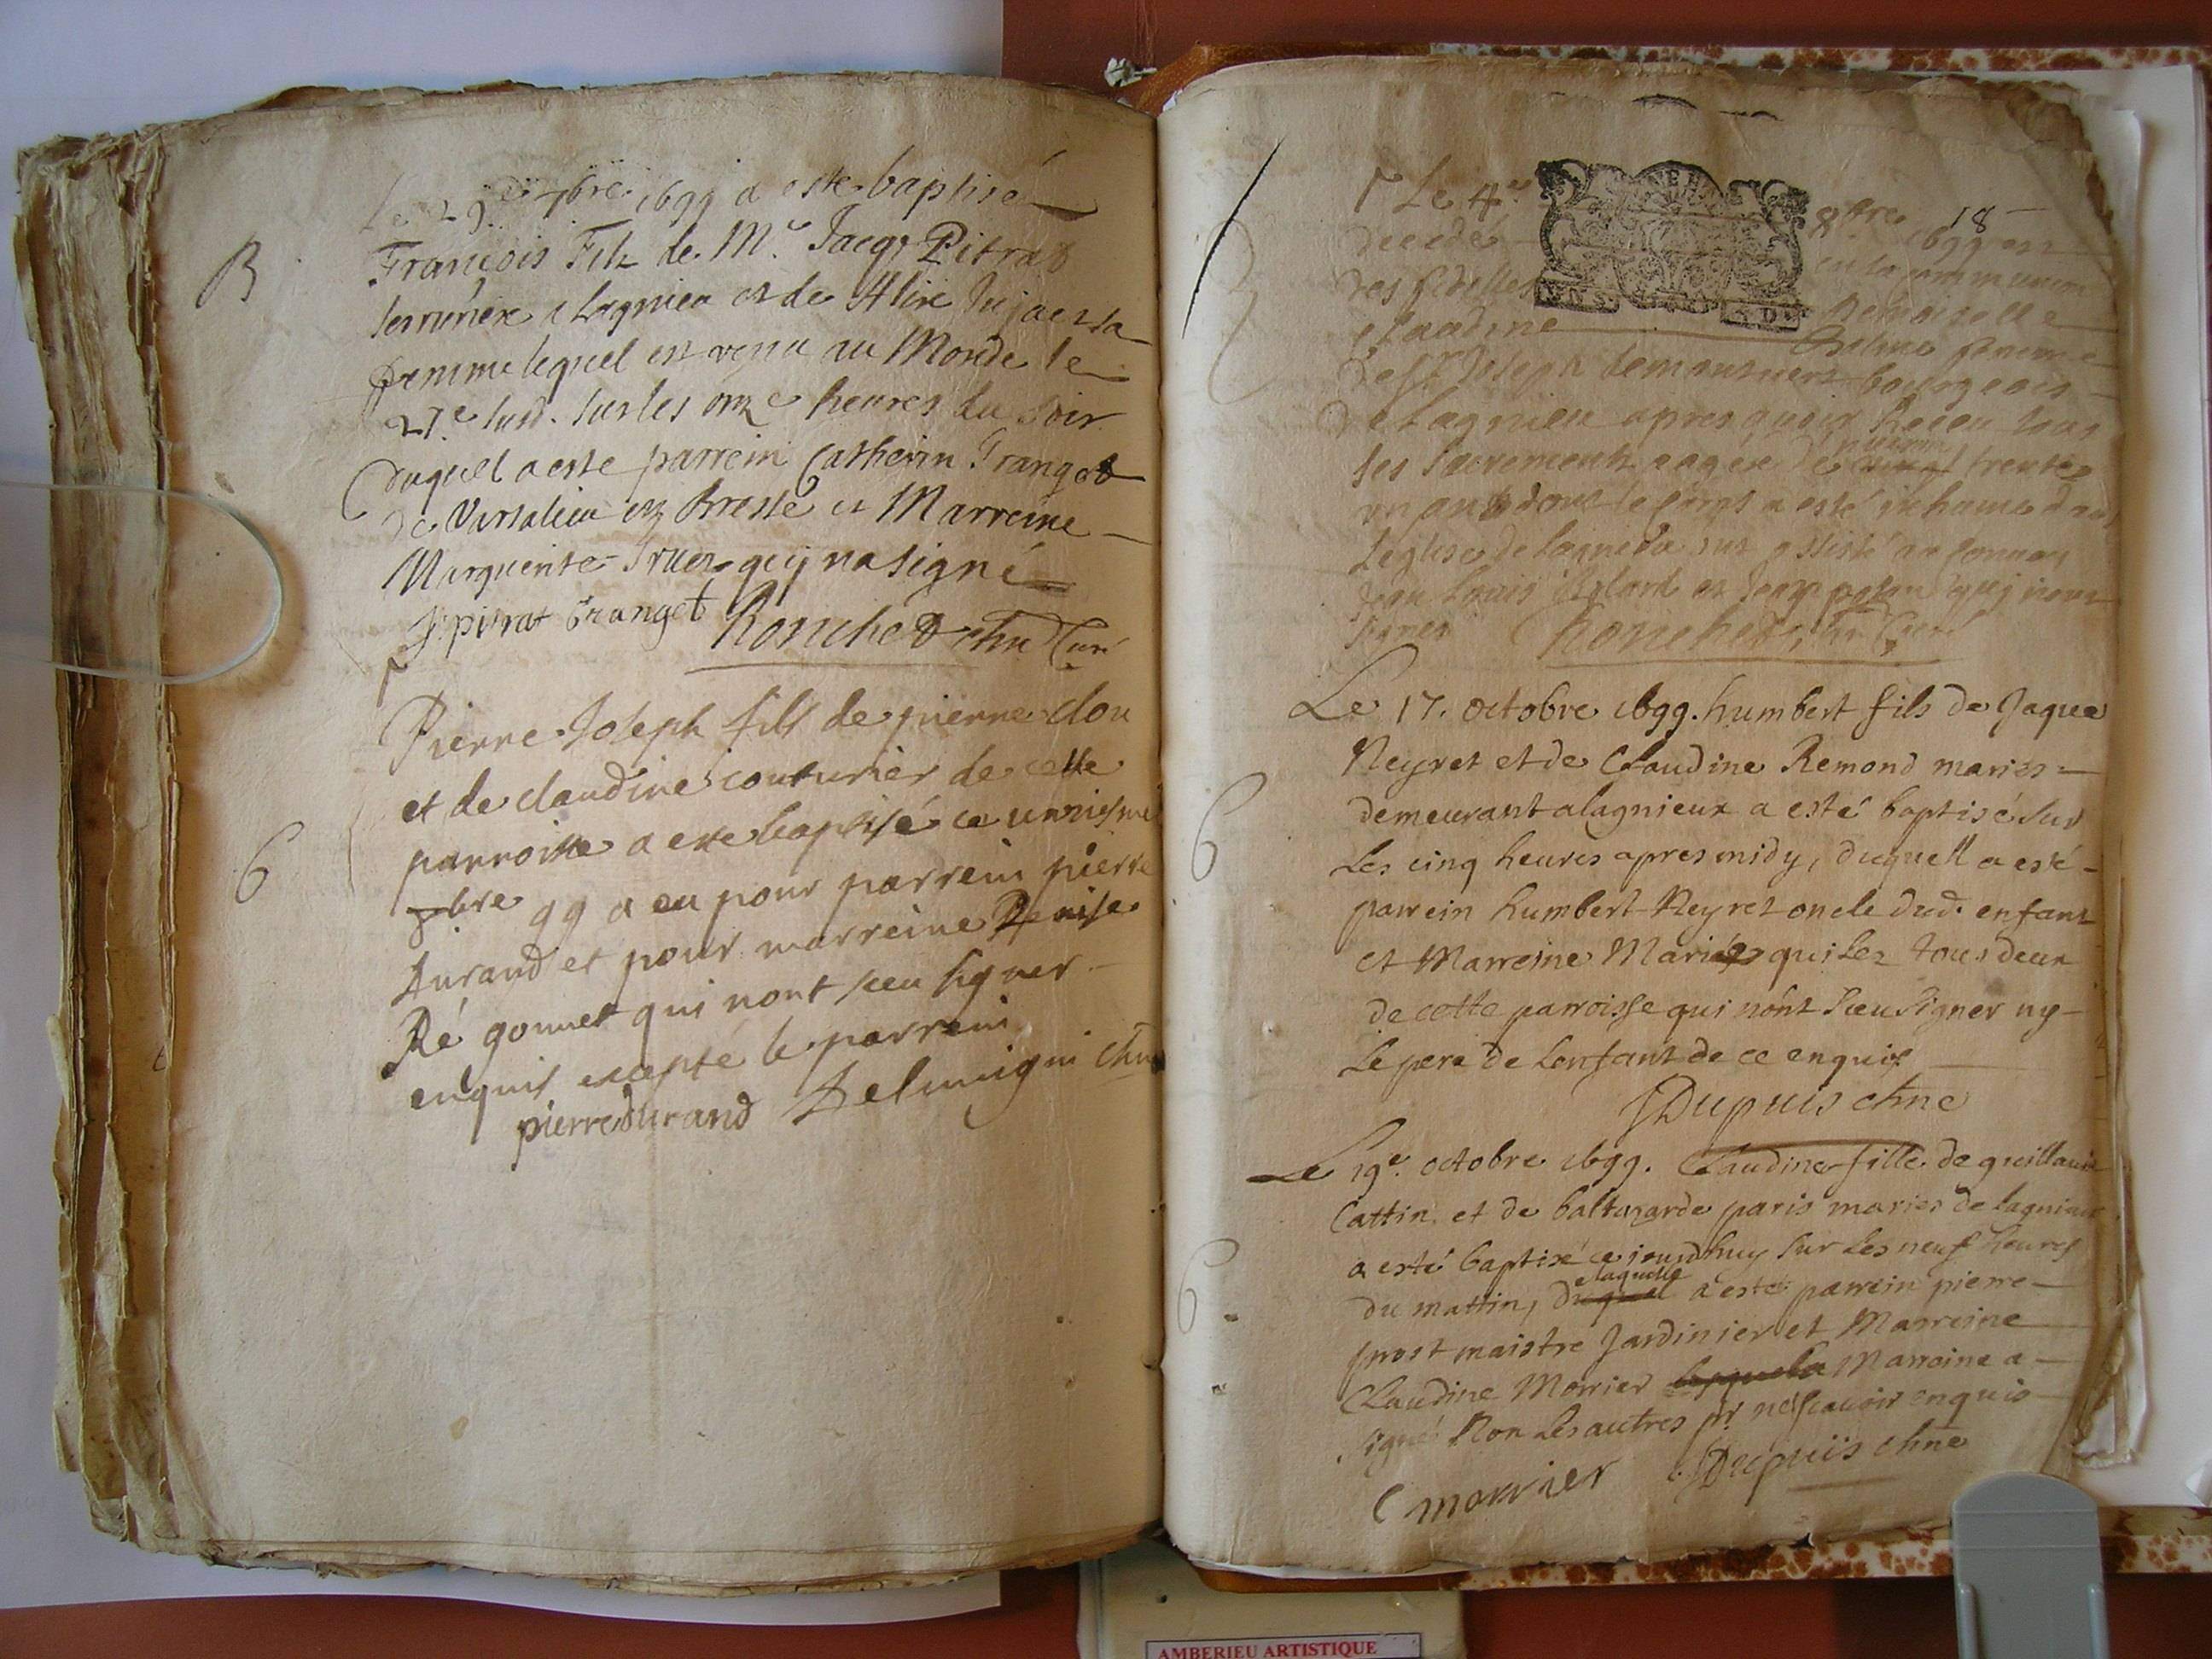 B
Le 29.e 7bre 1699 a este baptisé
François Filz de M.e Jacq. Pitrat
serrurier a Lagnieu et de Alix
femme lequel est venu au Monde le
27.e susd. sur les onze heures du soir
duquel a este parrein Catherin Tranget
de en Bresse et Marreine
Marguerite qui na signé
J pitrat tranget Ronchet chne Curé
6
Pierre Joseph fils de pierre clou
et de claudine couturier de cette
parroisse a este baptisé ce unziesme
8bre 99 a eu pour parrein pierre
Durand et pour marreine Denise
Ré gonnet qui nont sceu signer
enquis excepté le parrein
pierre durand chne
18
Le 4.e 8bre 1699 est
decedé en la communion
des fidelles Demoiselle
claudine femme
de Sr Joseph bourgeois
de Lagnieu apres avoir Receu tous
ses Sacrements aagée de environ trente
un an dont le corps a esté inhumé dans
Leglise de
Jean Louis et
signer Ronchet, chne Curé
Le 17. octobre 1699. humbert fils de Jaques
Neyret et de Claudine Remond mariés
demeurant a lagnieux a esté baptisé sur
6
Les cinq heures apres midy, duquell a esté
parrein humbert Neyret oncle dud. enfant
et Marreine Marie tous deux
de cette parroisse qui nônt sceu signer ny
Le pere de Lenfant de ce enquis
Dupuis chne
Le 19e. octobre 1699. Claudine fille de guillaume
Cattin et de baltazarde paris mariés de lagnieux
a esté baptisé ce jourdhuy sur Les neuf heures
6
elaquelle
du mattin, duquel a esté parrein pierre
prost maistre Jardinier et Marreine
Claudine Morrier Marreine a
signé Non Les autres pr ne scavoir enquis
C morrier Dupuis chne
AMBERIEU ARTISTIQUE